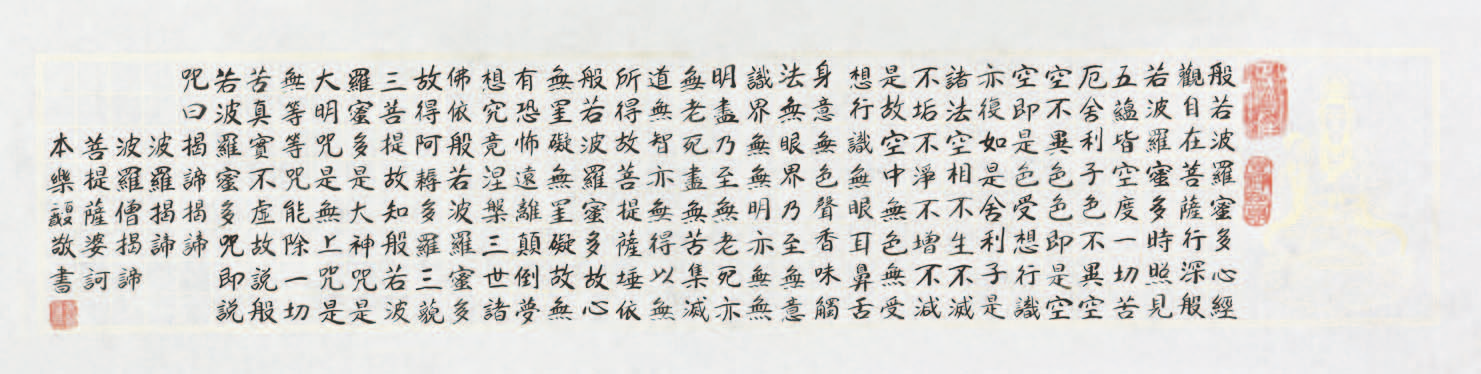 般若波羅蜜多心經
觀自在菩薩行深般
若波羅蜜多時照見
五蘊皆空度一切苦
厄舍利子色不異空
空不異色色即是空
空即是色受想行識
亦復如是舍利子是
諸法空相不生不滅
不垢不淨不增不減
是故空中無色無受
想行識無眼耳鼻舌
身意無色聲香味觸
法無眼界乃至無意
識界無無明亦無無
明盡乃至無老死亦
無老死盡無苦集滅
道無智亦無得以無
所得故菩提薩埵依
般若波羅蜜多故心
無罣礙無罣礙故無
有恐怖遠離顛倒夢
想究竟涅槃三世諸
佛依般若波羅蜜多
故得阿耨多羅三藐
三菩提故知般若波
羅蜜多是大神咒是
大明咒是無上咒是
無等等咒能除一切
苦真實不虛故説般
若波羅蜜多咒即説
咒曰揭諦揭諦
波羅揭諦
波羅僧揭諦
菩提薩婆訶
本樂敬書